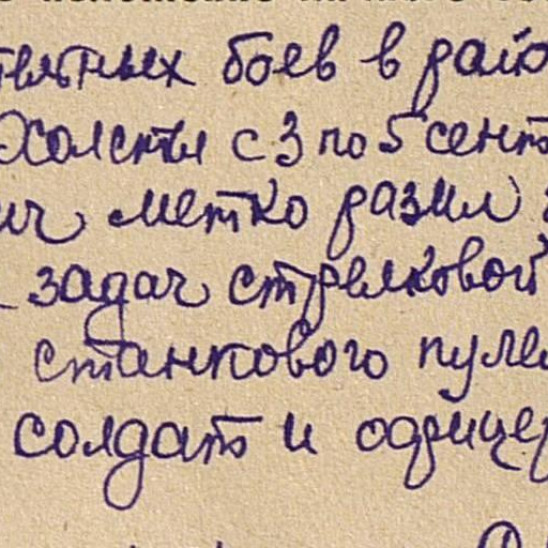 боев в райо
с 3 по 5 сент
метко разил
задач стрелковой
станкового пуле
солдат и офицер